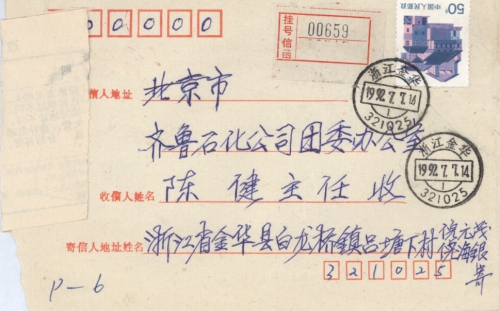 00000
挂号信函
00659
50分
中国人民邮政
收信人地址 北京市
齐鲁石化公司团委办公室
收信人姓名 陈健主任收
寄信人地址姓名 浙江省金华县白龙桥镇吕塘下村 倪元茂
倪海银
寄
321025
P—6
浙江金华
1992.7.7.14
321025
浙江金华
1992.7.7.14
321025